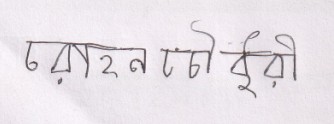 রোহন চৌধুরী